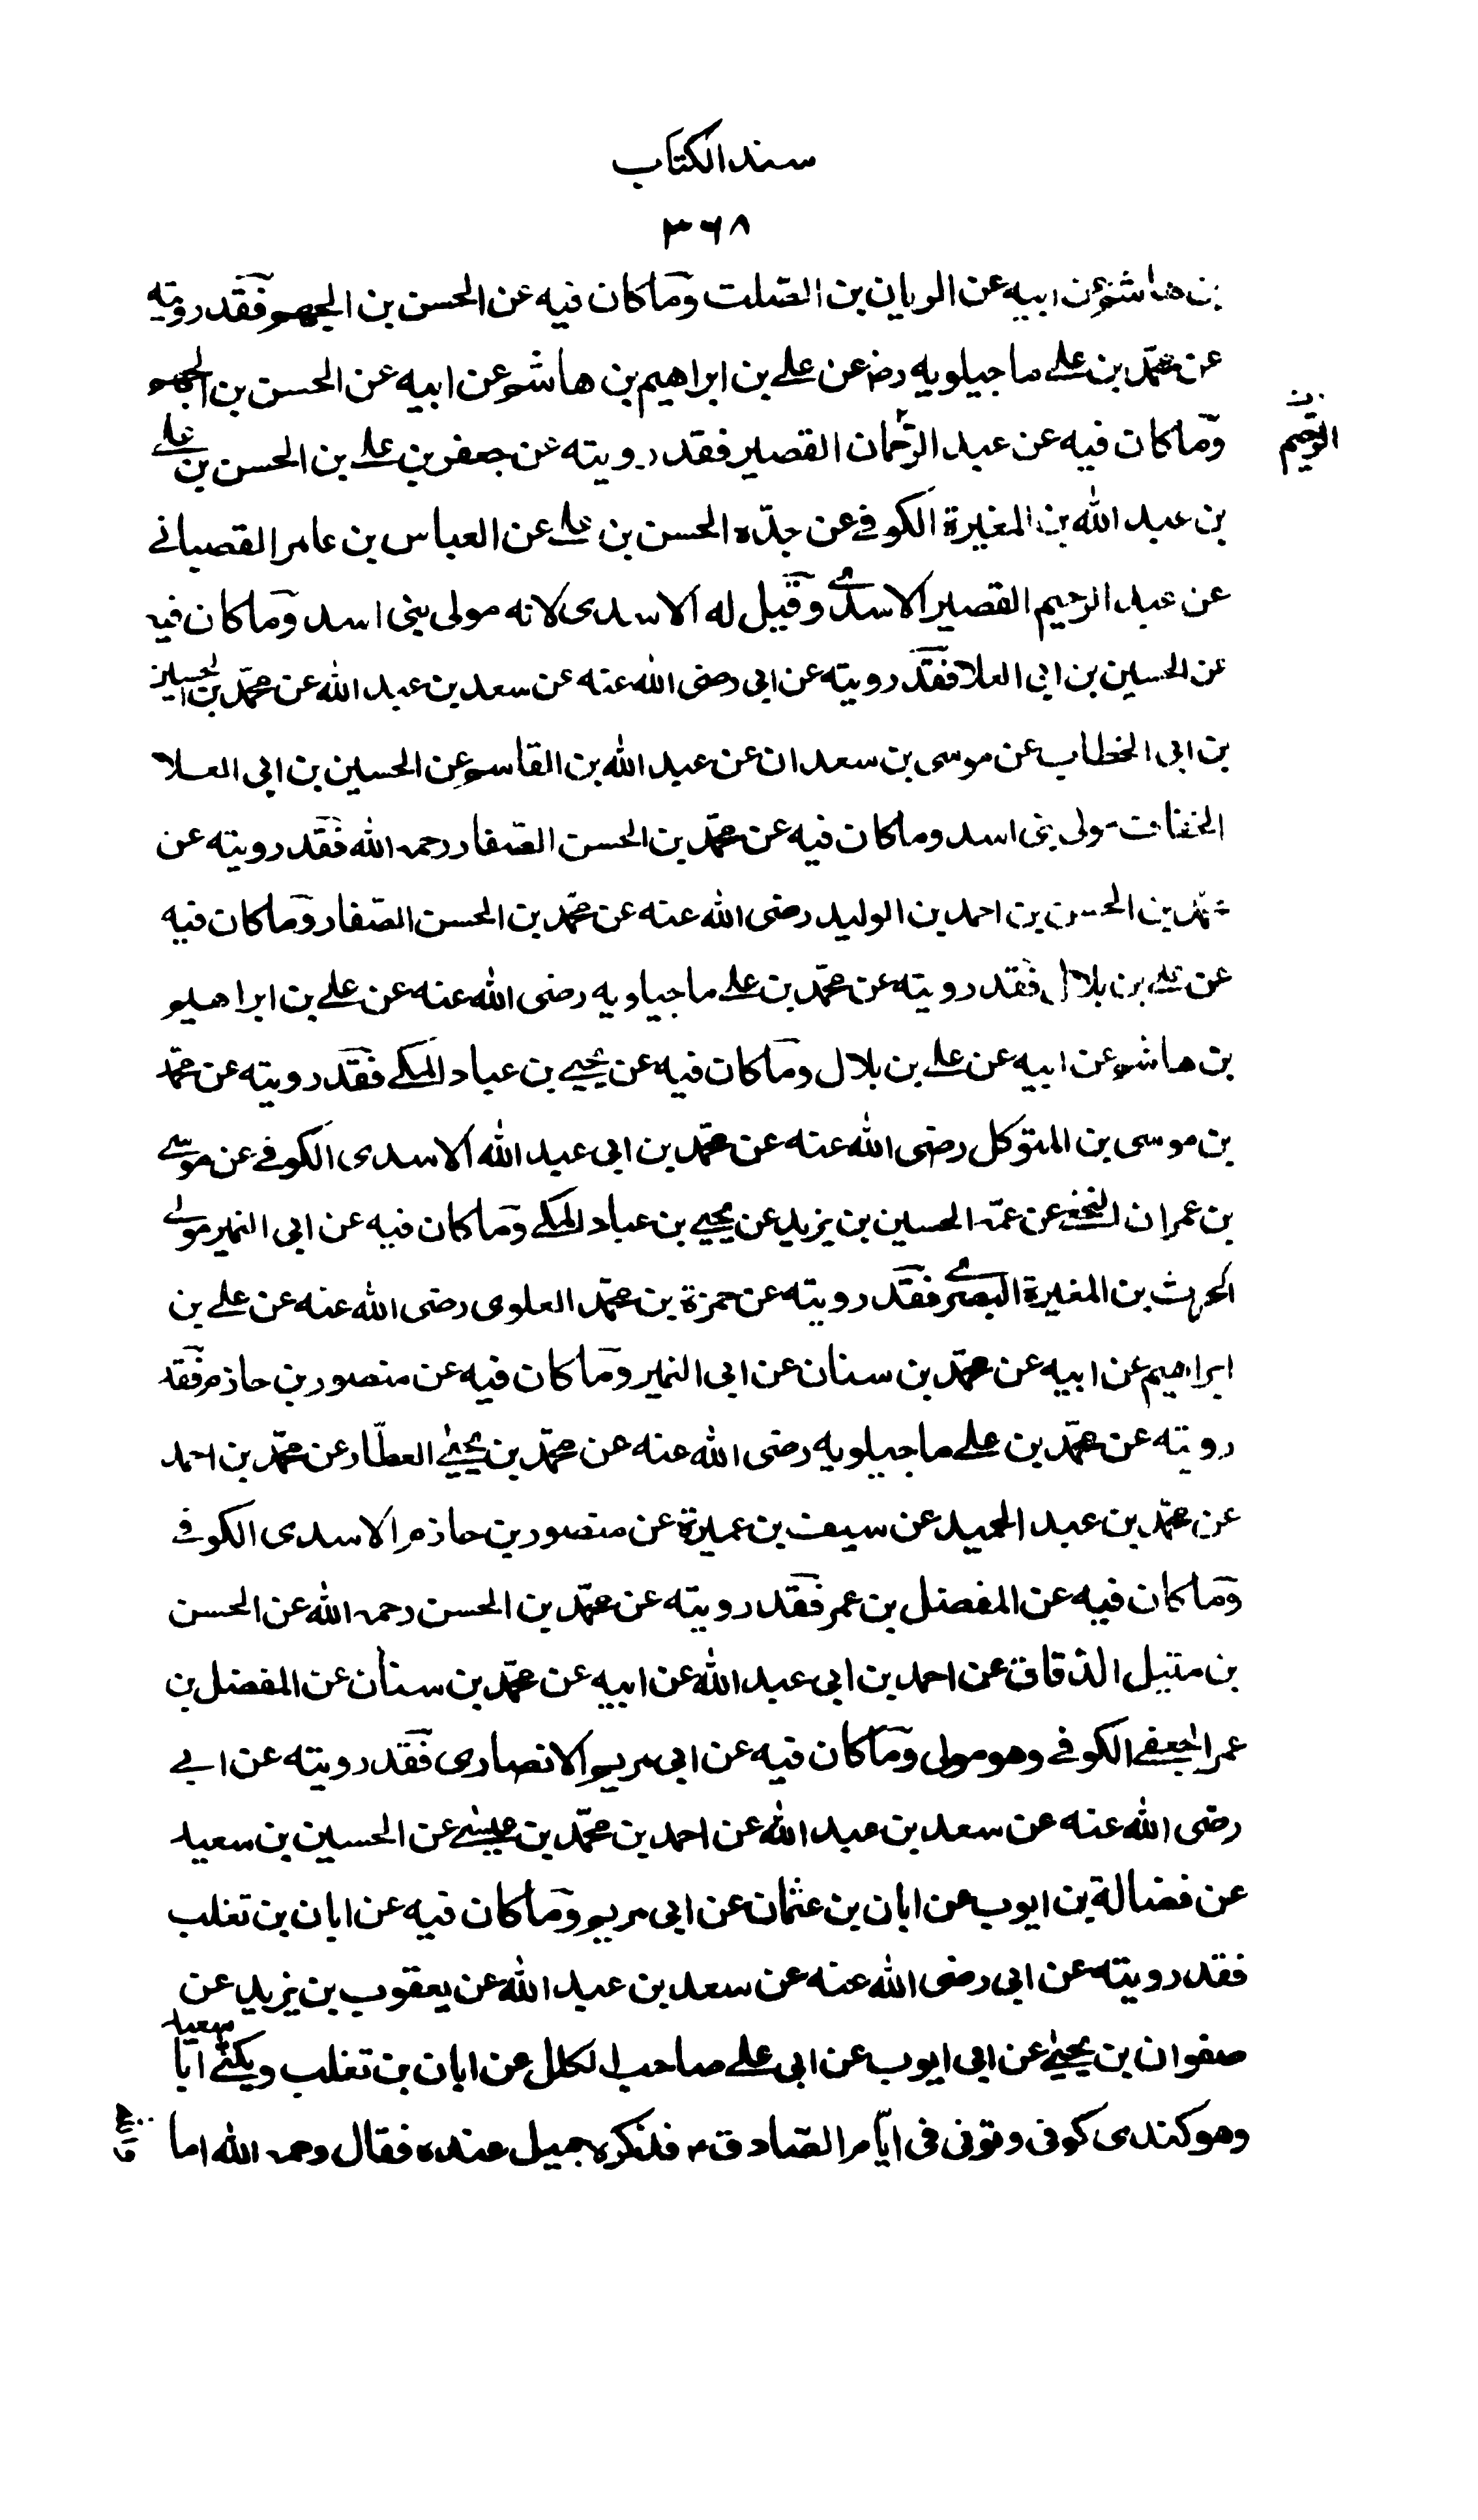 سند الكتاب
٣٦٨
بن هاشم عن ابيه عن الريان بن الصّلت ومَا كان فيه عن الحسن بن الجهم فقَد رويته
عن محمّد بن علے ماجيلويه رضـ عن علے بن ابراهيم بن هاشم عن ابيه عن الحسن بن الجهم
ومَا كان فيه عن عبد الرّحمان القصير فقد رويته عن جعفر بن علے بن الحسن بن علے
الرّحيم
بن عبد الله بن المغيرة الكوفے عن جدّه الحسن بن علے عن العباس بن عامر القصبانے
عن عبد الرحيم القصير الاسدے وقيل له الاسدى لانه مولى بنى اسد ومَا كان فيه
عن الحسين بن ابى العلا فقَد رويته عن ابى رضى الله عنه عن سعد بن عبد الله عن محمّد بن الحسين
بن ابى الخطاب عن موسى بن سعدان عن عبد الله بن القاسم عن الحسين بن ابى العلا
الخفاف مولى بنى اسد وما كان فيه عن محمّد بن الحسن الصّفار رحمه الله فقَد رويته عن
محمّد بن الحسن بن احمد بن الوليد رضى الله عنه عن محمّد بن الحسن الصّفار ومَا كان فيه
عن علے بن بلال فقد رويته عن محمّد بن علے ماجيلويه رضى الله عنه عن علے بن ابراهيم
بن هاشم عن ابيه عن علے بن بلال ومَا كان فيه عن يحيے بن عباد المكے فقَد رويته عن محمّد
بن موسى بن المتوكل رضى الله عنه عن محمّد بن ابى عبد الله الاسدى الكوفے عن موسے
بن عمران النخعے عن عمّه الحسين بن يزيد عن يحيے بن عباد المكے ومَا كان فيه عن ابى النمير مولے
الحرث بن المغيرة البصرے فقَد رويته عن حمزة بن محمّد العلوى رضى الله عنه عن علے بن
ابراهيم عن ابيه عن محمّد بن سنان عن ابى النمير ومَا كان فيه عن منصور بن حازم فقَد
رويته عن محمّد بن علے ماجيلويه رضى الله عنه عن محمّد بن يحيٰے العطّار عن محمّد بن احمد
عن محمّد بن عبد الحميد عن سيف بن عميرة عن منصور بن حازم الاسدى الكوفے
ومَا كان فيه عن المفضل بن عمر فقَد رويته عن محمّد بن الحسن رحمه الله عن الحسن
بن متيل الدقاق عن احمد بن ابى عبد الله عن ابيه عن محمّد بن سنان عن المفضل بن
عمر الجعفے الكوفے وهو مولى ومَا كان فيه عن ابى مريم الانصارى فقَد رويته عن ابے
رضى الله عنه عن سعد بن عبد الله عن احمد بن محمّد بن عيسٰے عن الحسين بن سعيد
عن فضالة بن ايوب عن ابان بن عثمان عن ابى مريم ومَا كان فيه عن ابان بن تغلب
فقد رويته عن ابى رضى الله عنه عن سعد بن عبد الله عن يعقوب بن يزيد عن
صفوان بن يحيٰے عن ابى ايوب عن ابى علے صاحب الكلل عن ابان بن تغلب ويكنّے ابا سعيد
وهو كندى كوفى وتوفى فى ايّام الصّادق م فذكره جميل عنده فقال رحمه الله اما